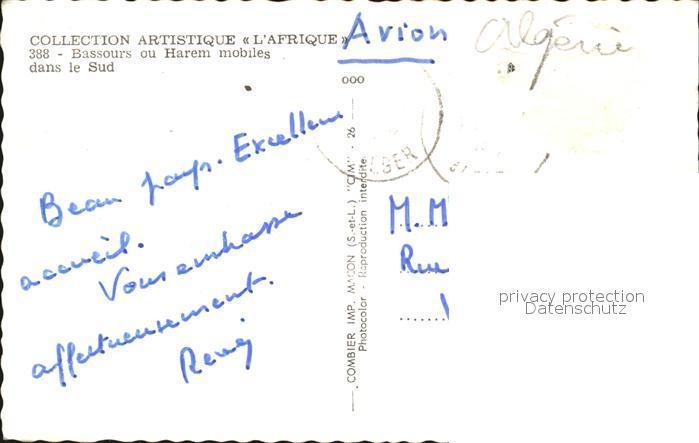 COLLECTION ARTISTIQUE « L'AFRIQUE »
388 - Bassours ou Harem mobiles
dans le Sud
Avion
Algérie
ooo
Beau pays. Excellent
accueil.
Vous embrasse
affectueusement.
COMBIER IMP. MACON (S.-et-L.) "CIM" - 26
Photocolor - Reproduction interdite
LGER
M. M
Rue
privacy protection
Datenschutz